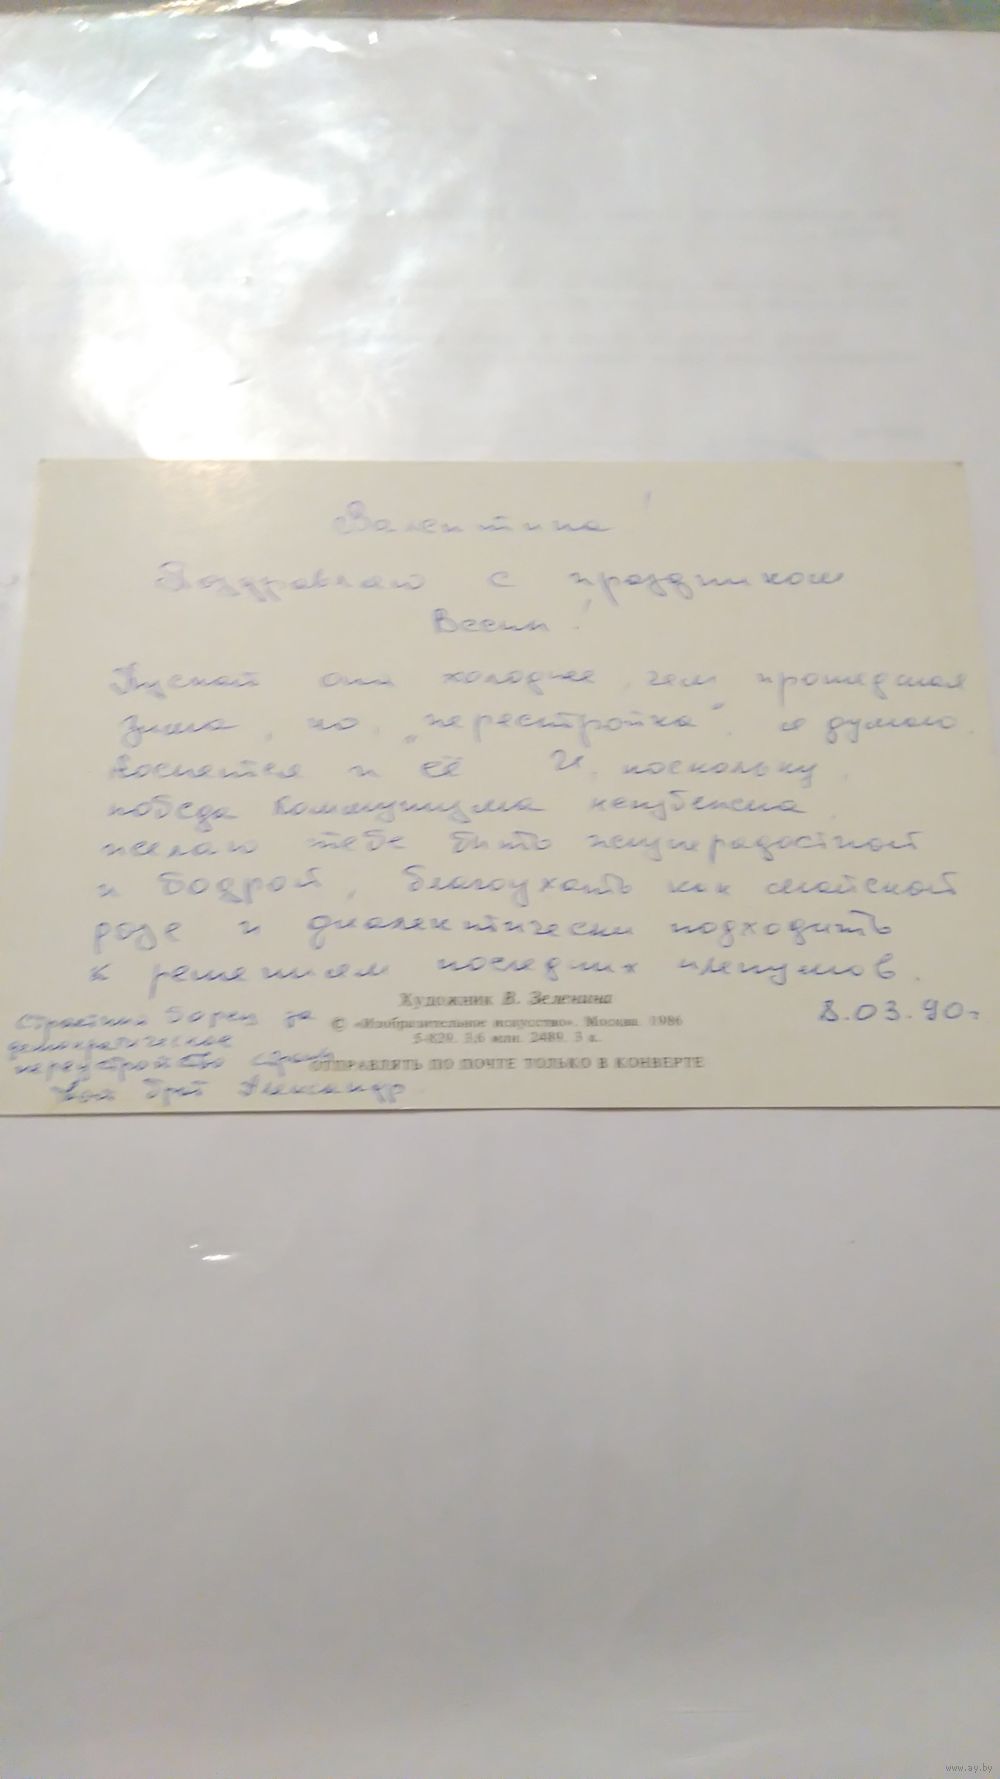 Валентина!
Поздравляю с праздником
Весны!
Пускай она холоднее, чем прошедшая
зима, но, "перестройка", я думаю,
коснётся и её. И, поскольку,
победа коммунизма неизбежна,
желаю тебе быть жизнерадостной
и бодрой, благоухать как майской
розе и диалектически подходить
к решениям последних пленумов.
8.03.90г
Страстный борец за
демократическое
переустройство страны
твой брат Александр
Художник В. Зеленина
© «Изобразительное искусство». Москва. 1986
5-829. 3,6 млн. 2489. 3 к.
ОТПРАВЛЯТЬ ПО ПОЧТЕ ТОЛЬКО В КОНВЕРТЕ
www.ay.by